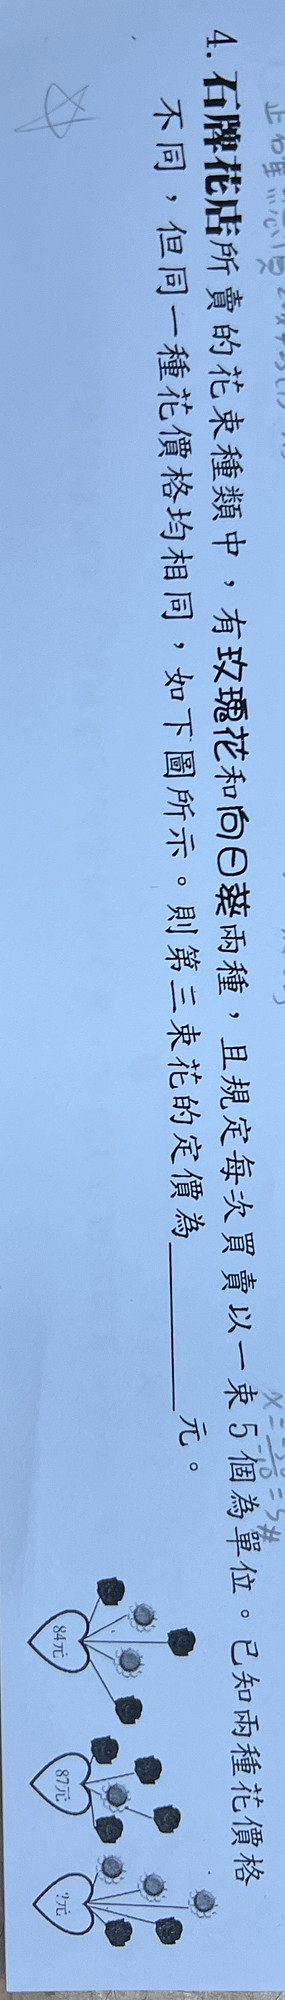 4. 石牌花店所賣的花束種類中，有玫瑰花和向日葵兩種，且規定每次買賣以一束5個為單位。已知兩種花價格
不同，但同一種花價格均相同，如下圖所示。則第三束花的定價為______元。
84元
87元
?元